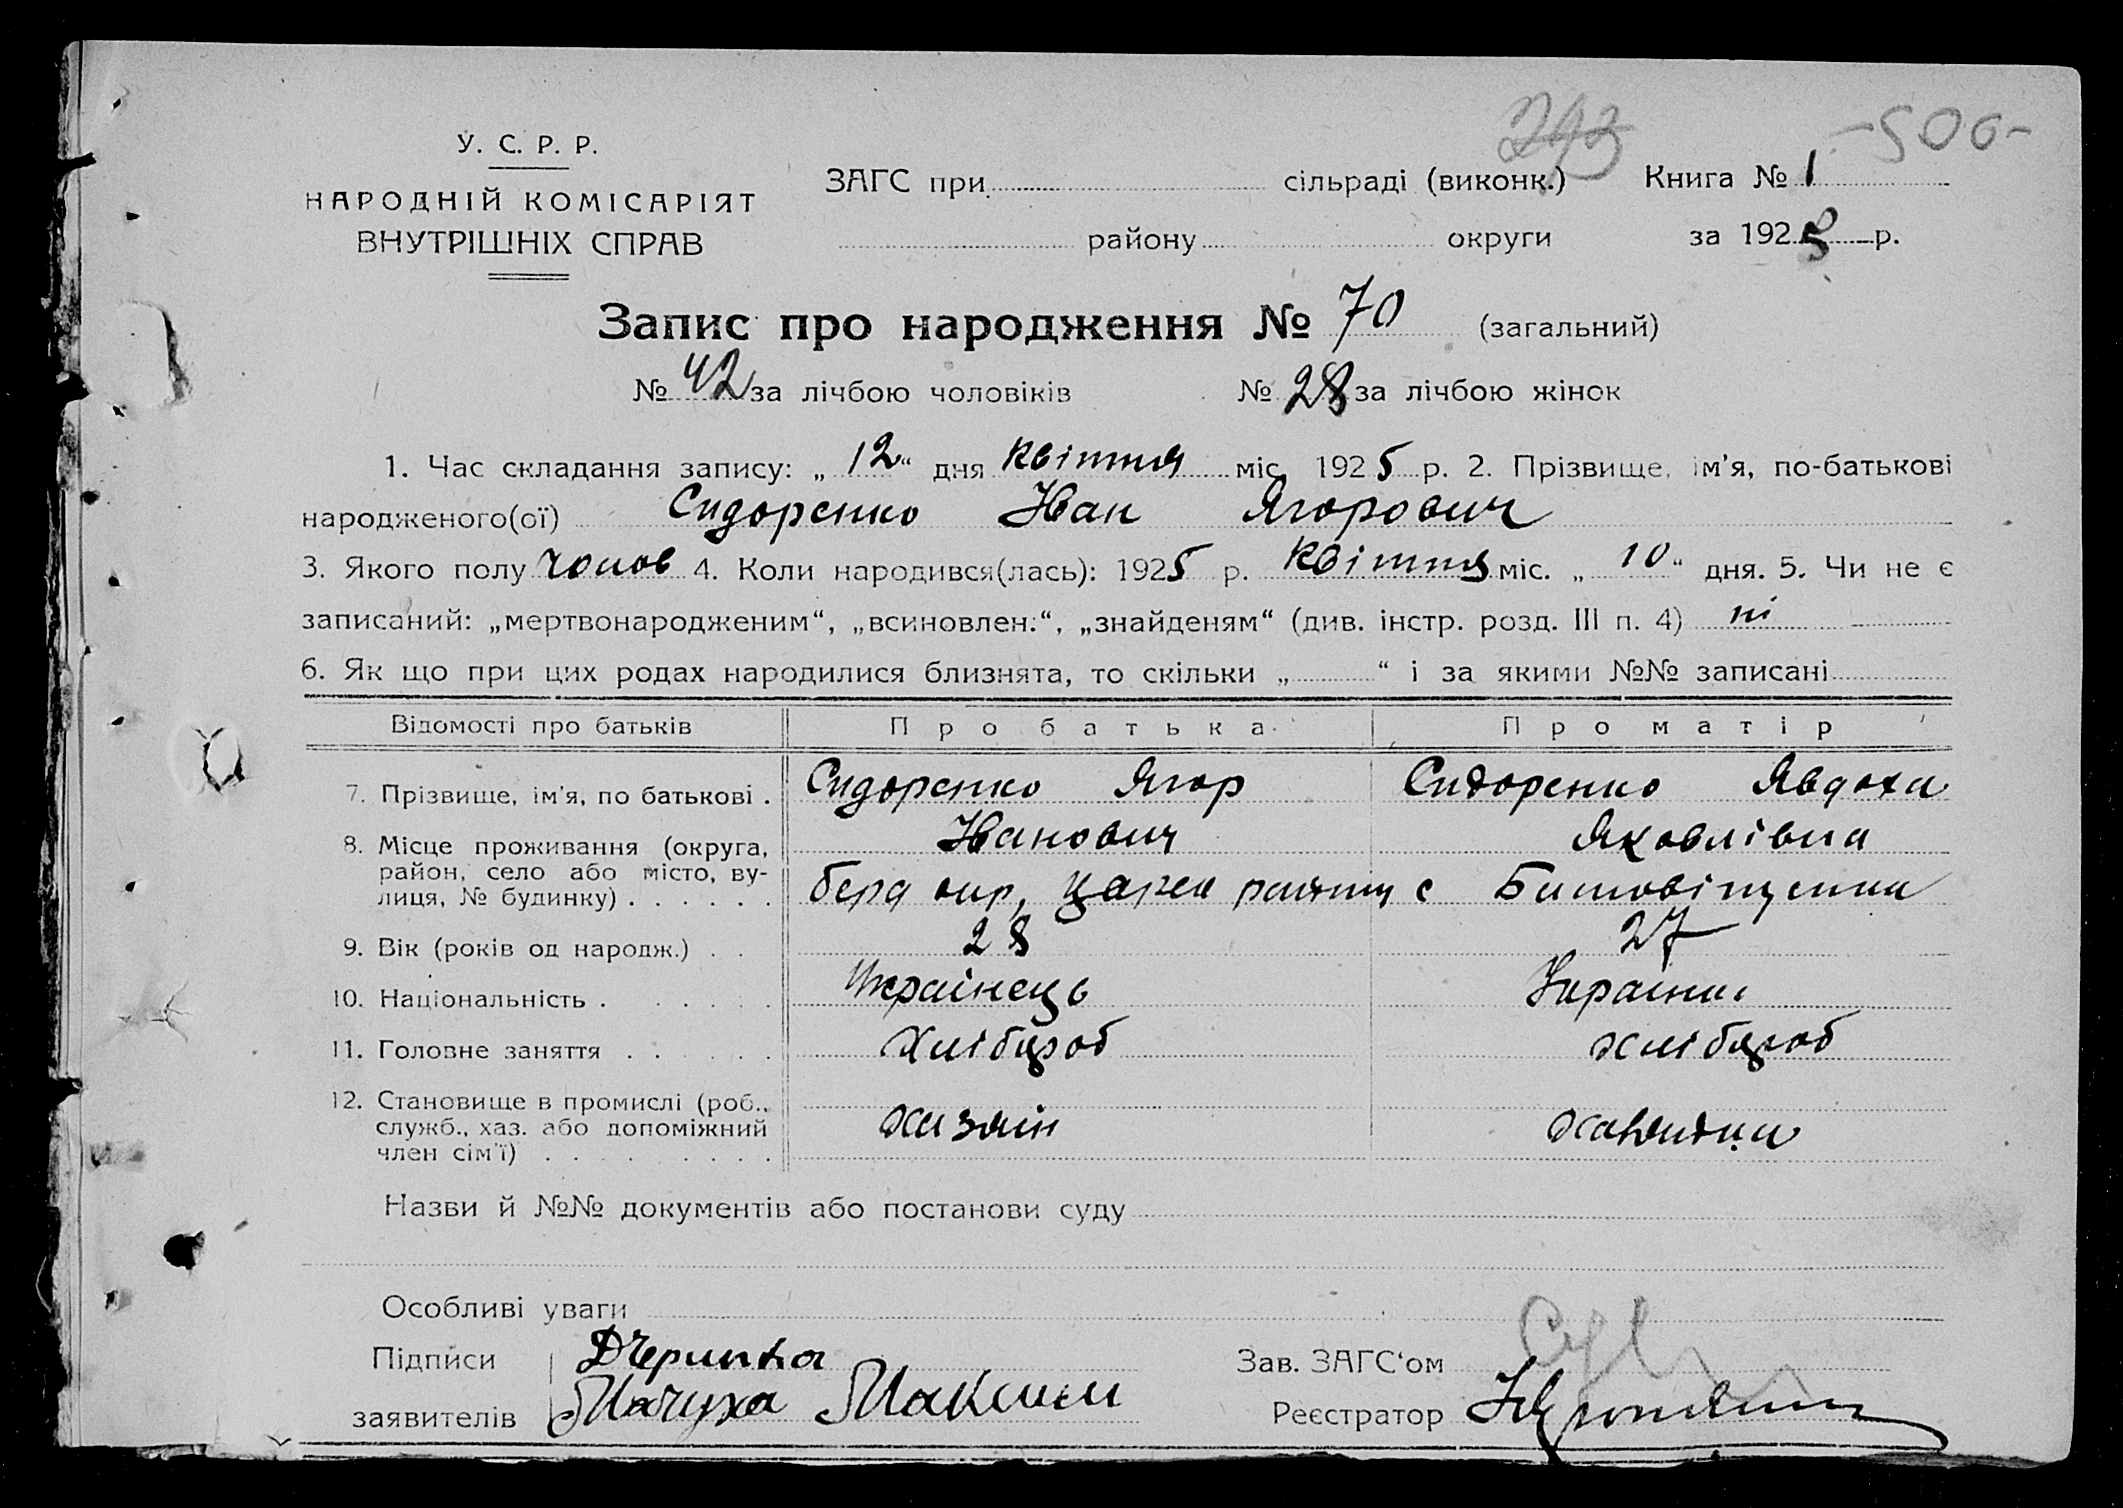 293 -500-
У. С. Р. Р.
НАРОДНІЙ КОМІСАРІЯТ
ВНУТРІШНІХ СПРАВ
ЗАГС при сільраді (виконк.) Книга № 1
району округи за 1925 р.
Запис про народження № 70 (загальний)
№ 42 за лічбою чоловіків № 28 за лічбою жінок
1. Час складання запису: „12“ дня квітня міс. 1925 р. 2. Прізвище, ім'я, по-батькові
народженого(ої) Сидоренко Іван Ягорович
3. Якого полу чолов 4. Коли народився(лась): 1925 р. квітня міс. „10“ дня. 5. Чи не є
записаний: „мертвонародженим“, „всиновлен:“, „знайденям“ (див. інстр. розд. III п. 4) ні
6. Як що при цих родах народилися близнята, то скільки „ “ і за якими №№ записані
Відомості про батьків Про батька Про матір
7. Прізвище, ім'я, по батькові . Сидоренко Ягор Сидоренко Явдоха
Іванович Яковлівна
8. Місце проживання (округа,
район, село або місто, ву-
лиця, № будинку) . . . . . . Берд окр, Царек с
9. Вік (років од народж.) . . 28 27
10. Національність . . . . . . Українець
11. Головне заняття . . . . . Хлібороб хлібороб
12. Становище в промислі (роб.,
служб., хаз. або допоміжний
член сім'ї) . . . . . . . . . хазяїн
Назви й №№ документів або постанови суду
Особливі уваги
Підписи
заявителів Мачуха Максим
Зав. ЗАГС'ом
Реєстратор